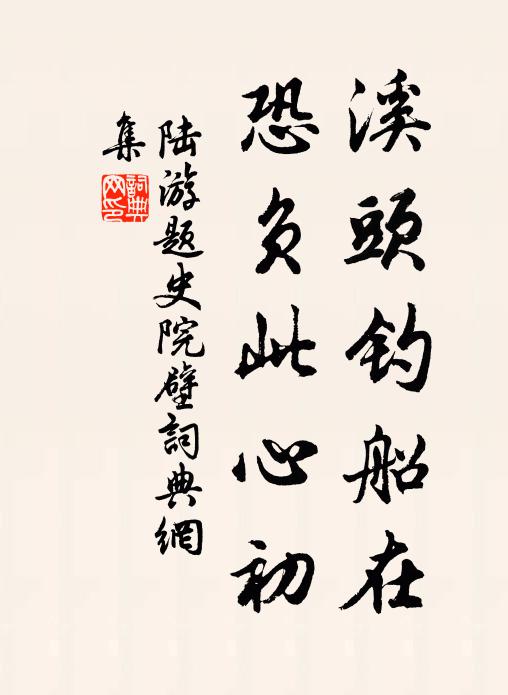 溪頭釣船在
恐負此心初
陸游題史院壁詞典網
集
詞典
网印